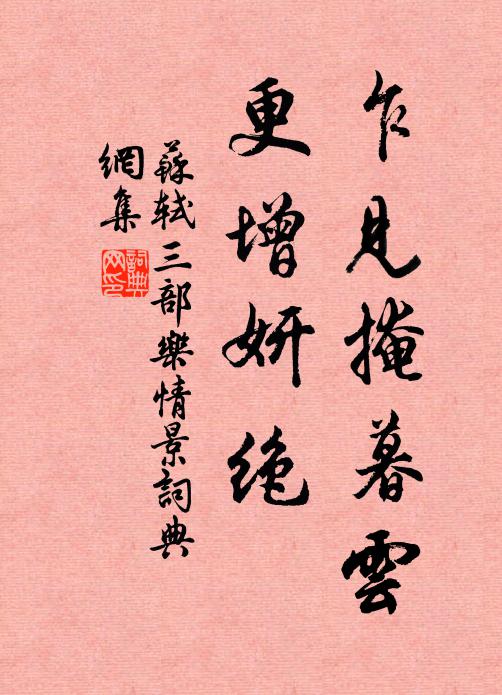 乍見掩暮雲
更增妍絶
蘇軾三部樂情景詞典
網集
詞典網印